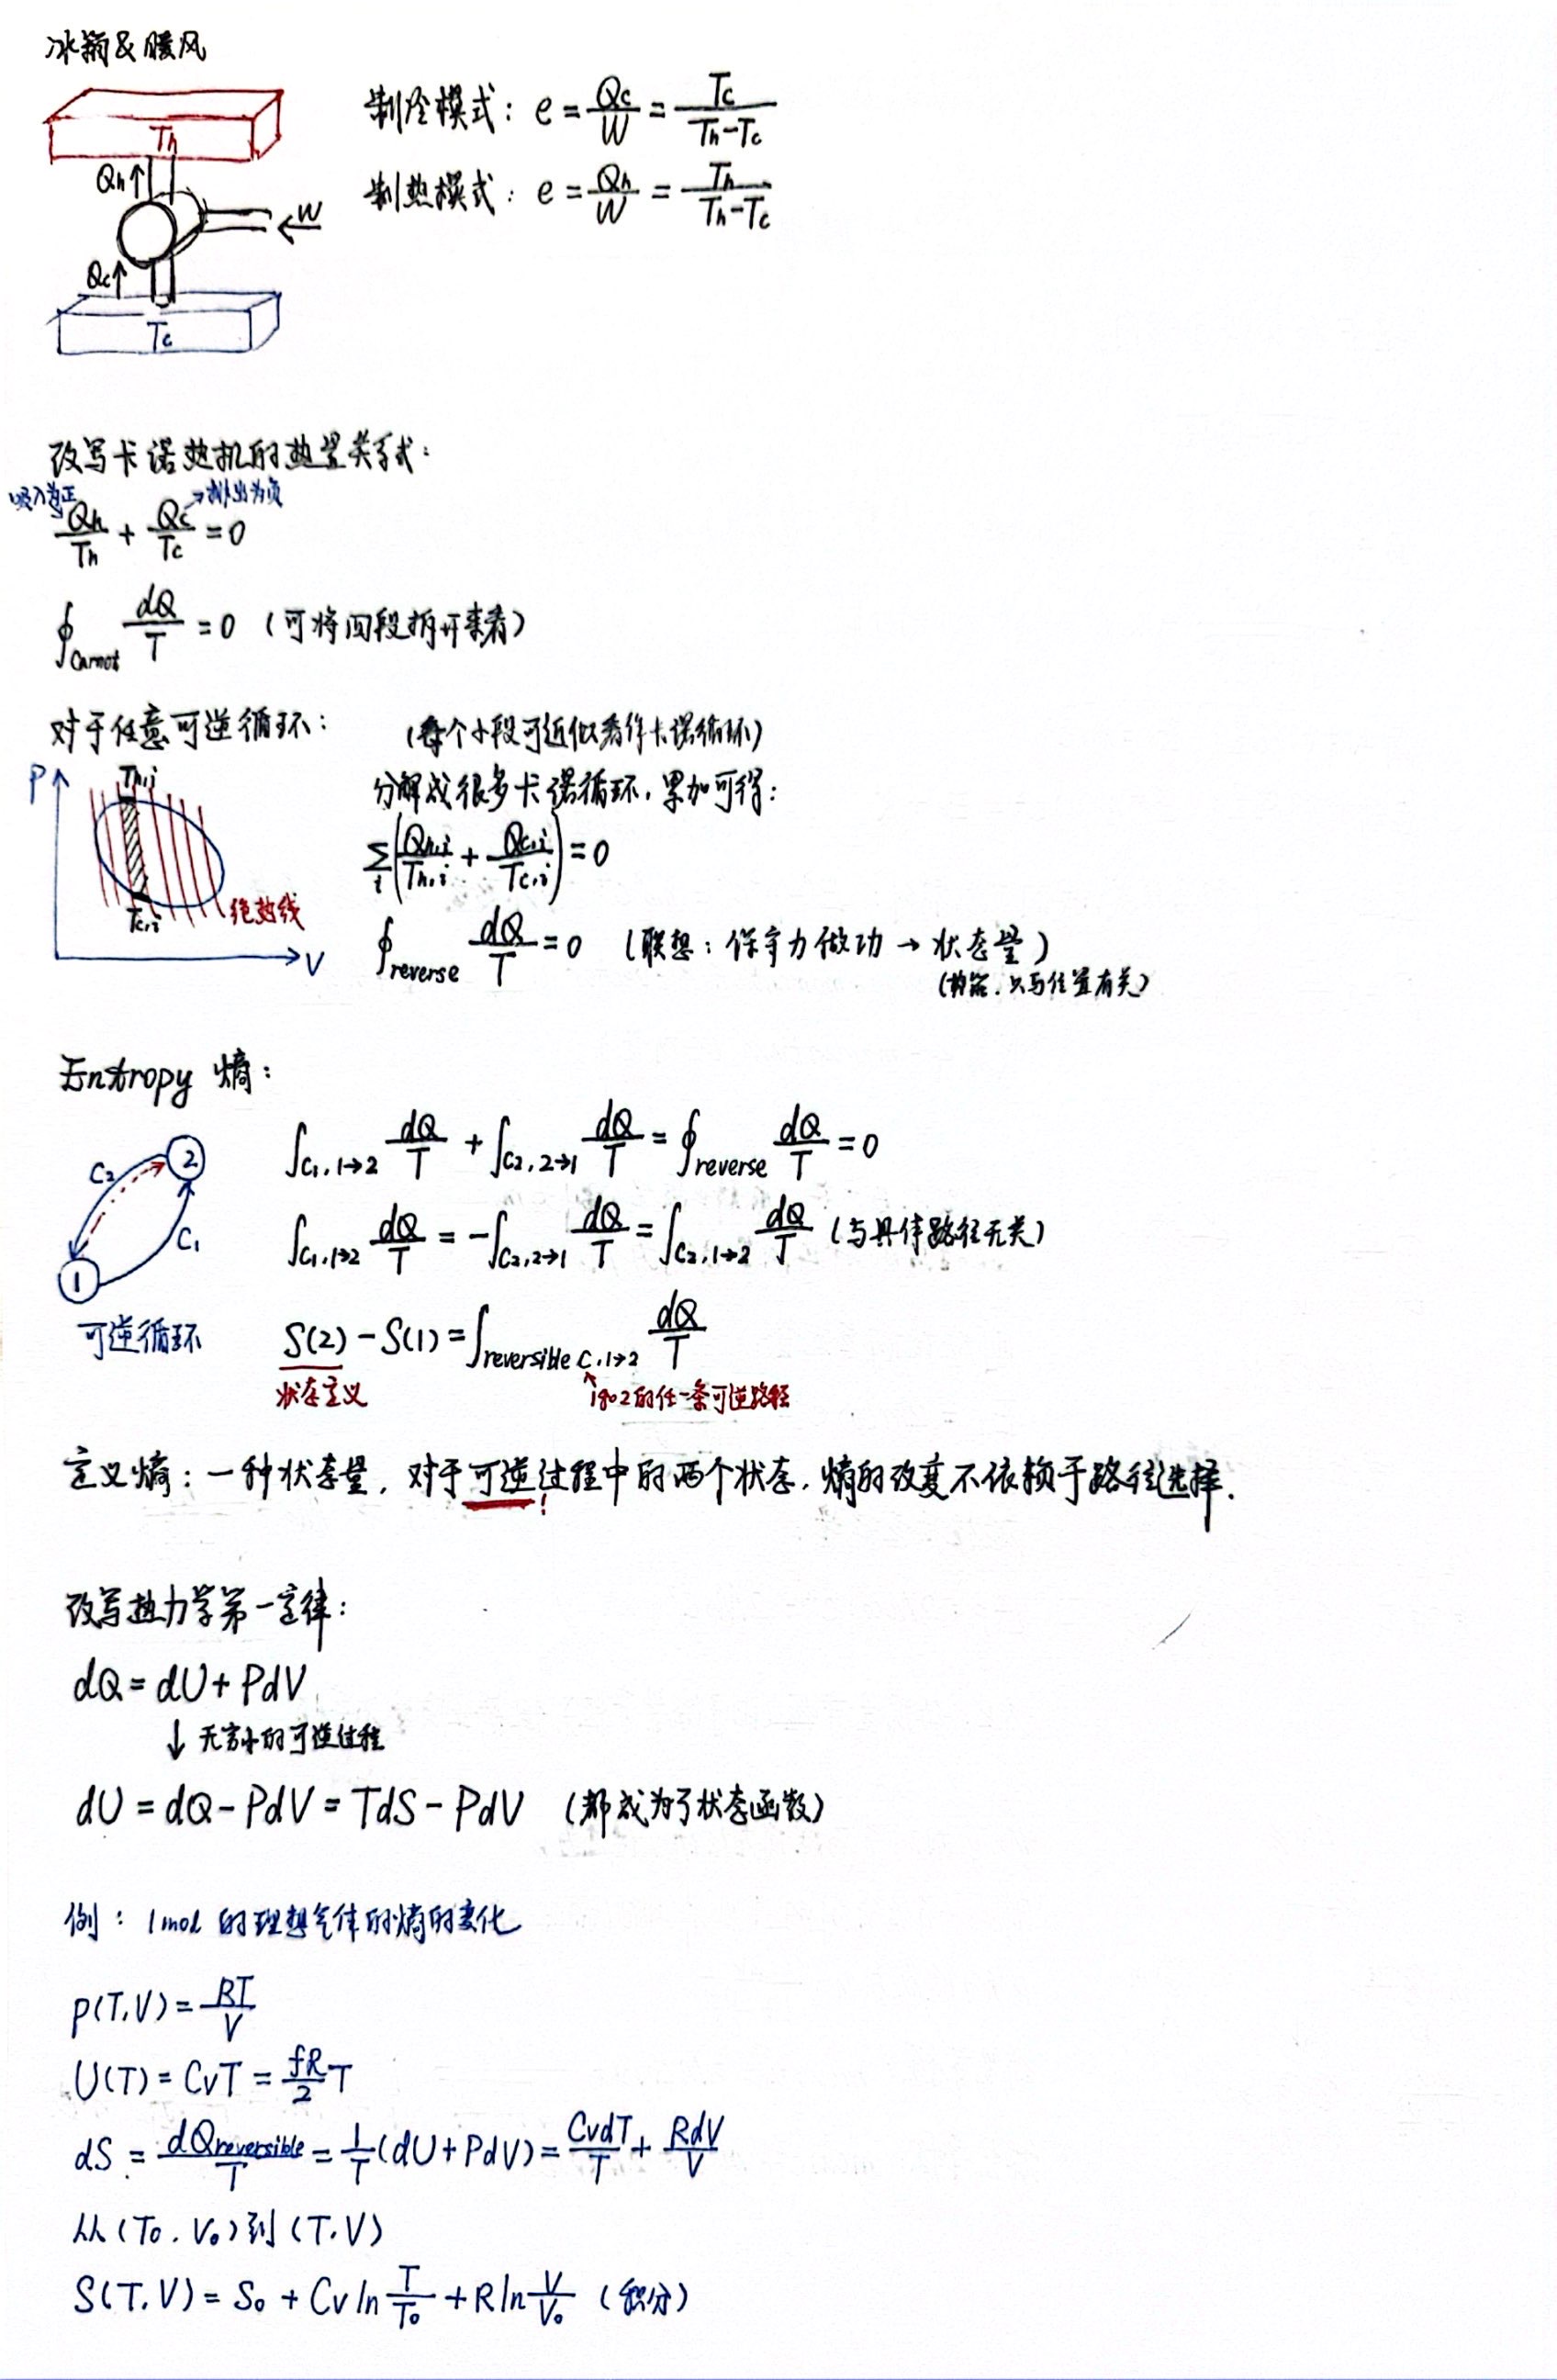 冰箱&暖风
Th
Qh↑
←W
Qc↑
Tc
制冷模式：e = Qc/W = Tc/(Th-Tc)
制热模式：e = Qh/W = Th/(Th-Tc)
改写卡诺热机的热量关系式：
吸入为正 →排出为负
Qh/Th + Qc/Tc = 0
∮Carnot dQ/T = 0 （可将四段拆开来看）
对于任意可逆循环：
P
Th,i
Tc,i
绝热线
V
（每个小段可近似看作卡诺循环）
分解成很多卡诺循环，累加可得：
∑i(Qh,i/Th,i + Qc,i/Tc,i) = 0
∮reverse dQ/T = 0 （联想：保守力做功 → 状态量）
（势能，只与位置有关）
Entropy 熵：
C2
2
C1
1
可逆循环
∫C1,1→2 dQ/T + ∫C2,2→1 dQ/T = ∮reverse dQ/T = 0
∫C1,1→2 dQ/T = -∫C2,2→1 dQ/T = ∫C2,1→2 dQ/T （与具体路径无关）
S(2) - S(1) = ∫reversible C,1→2 dQ/T
状态定义
1到2的任一条可逆路径
定义熵：一种状态量，对于可逆过程中的两个状态，熵的改变不依赖于路径选择.
!
改写热力学第一定律：
dQ = dU + PdV
↓ 无穷小的可逆过程
dU = dQ - PdV = TdS - PdV （都成为了状态函数）
例：1mol 的理想气体的熵的变化
P(T,V) = RT/V
U(T) = CvT = fR/2 T
dS = dQreversible/T = 1/T(dU + PdV) = CvdT/T + RdV/V
从(T0,V0)到(T,V)
S(T,V) = S0 + Cv ln T/T0 + R ln V/V0 （积分）